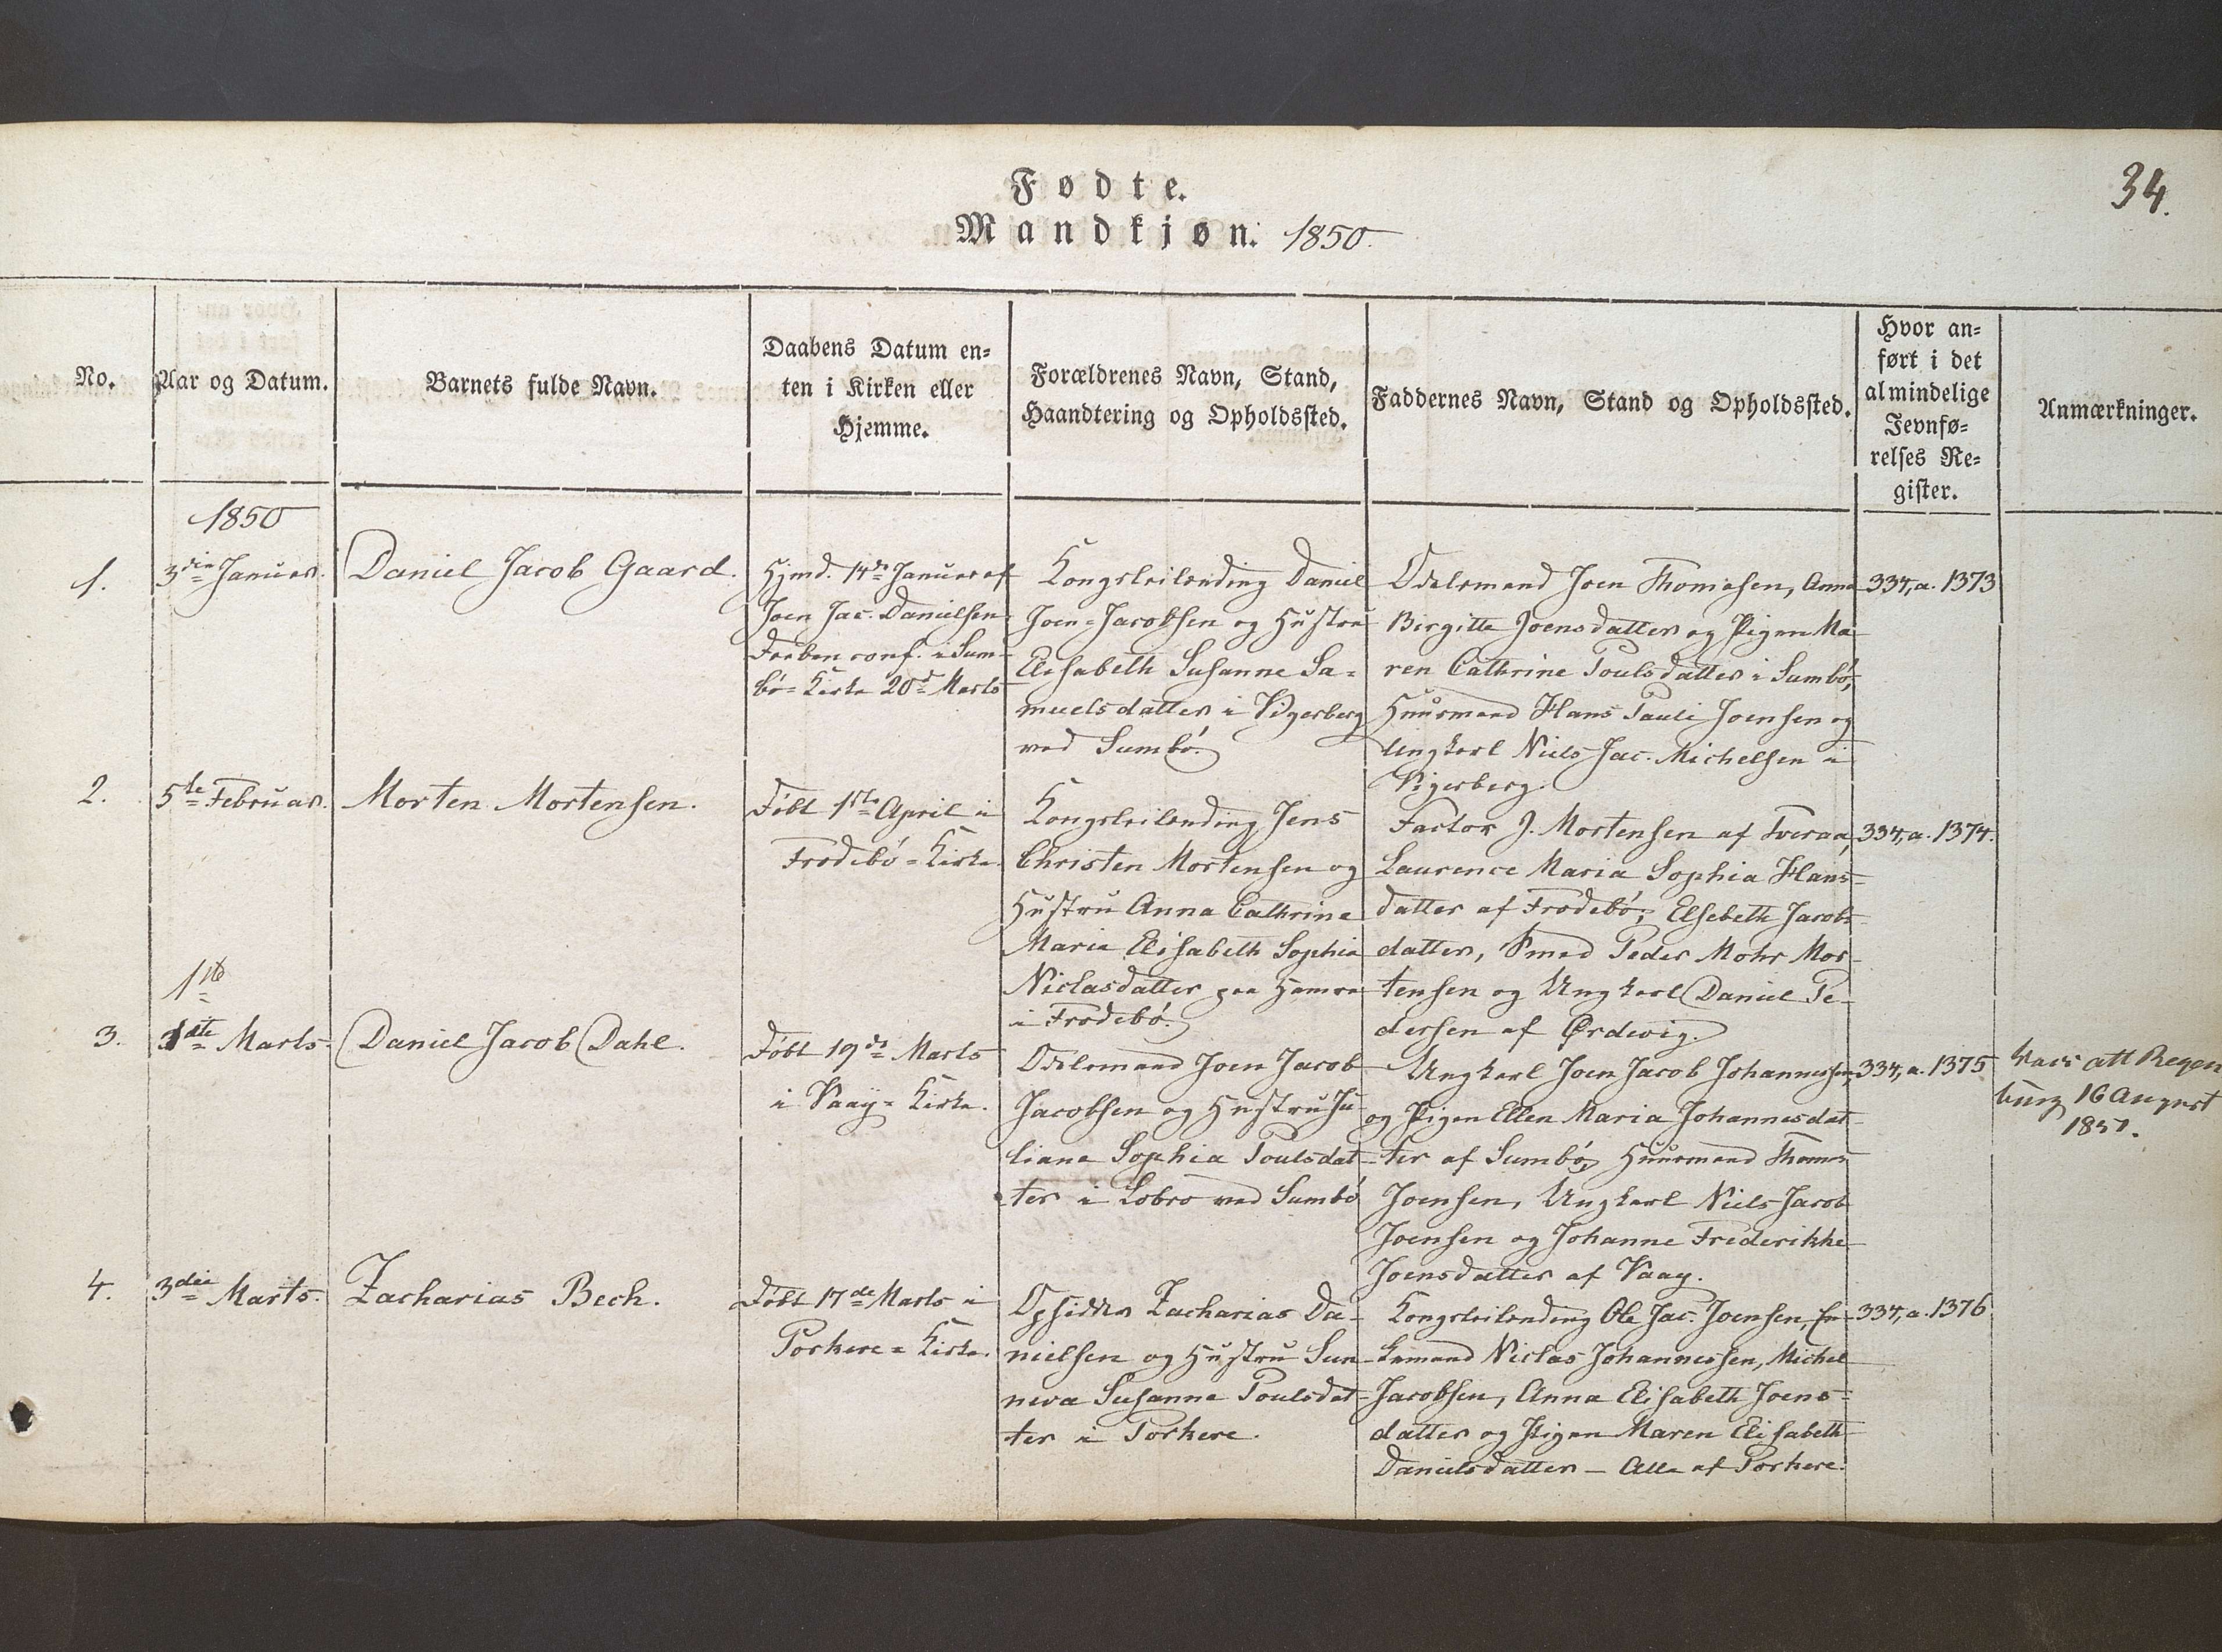 34.
Fødte.
Mandkjøn. 1850.
No.
Aar og Datum.
Barnets fulde Navn.
Daabens Datum en-
ten i Kirken eller
Hjemme.
Forældrenes Navn, Stand,
Haandtering og Opholdssted.
Faddernes Navn, Stand og Opholdssted.
Hvor an-
ført i det
almindelige
Jevnfø-
relses Re-
gister.
Anmærkninger.
1850
1.
3die Januar.
Daniel Jacob Gaard.
Hjmd. 14de Januar af
Joen Jac. Danielsen
Daaben conf. i Sum-
bø-Kirke 20de Marts
Kongsleilending Daniel
Joen-Jacobsen og Hustru
Elisabeth Susanne Sa-
muelsdatter i Vigerberg
ved Sumbø.
Odelsmand Joen Thomasen, Anna
Birgitte Joensdatter og Pigen Ma-
ren Cathrine Poulsdatter i Sumbø,
Huusmand Hans Pauli Joensen og
Ungkarl Niels Jac. Michelsen i
Vigerberg.
334, a. 1373
2.
5te Februar.
Morten Mortensen.
Døbt 1ste April i
Frodebø-Kirke.
Kongsleilending Jens
Christen Mortensen og
Hustru Anna Cathrine
Maria Elisabeth Sophia
Niclasdatter paa Hamra
i Frodebø.
Factor J. Mortensen af Tveraa,
Laurence Maria Sophia Hans-
datter af Frodebø, Elsebeth Jacobs-
datter, Smed Peder Mohr Mor-
tensen og Ungkarl Daniel Pe-
dersen af Ørdevig.
334, a. 1374.
1ste
3.
Marts.
Daniel Jacob Dahl.
Døbt 19de Marts
i Vaag-Kirke.
Odelsmand Joen Jacob
Jacobsen og Hustru Ju-
liane Sophia Poulsdat-
ter i Lobro ved Sumbø
Ungkarl Joen Jacob Johannessen,
og Pigen Ellen Maria Johannesdat-
ter af Sumbø, Huusmand Thomas
Joensen, Ungkarl Niels Jacob
Joensen og Johanne Frederikke
Joensdatter af Vaag.
334, a. 1375
att
16 August
4.
3die Marts.
Zacharias Bech.
Døbt 17de Marts i
Porkere-Kirke.
Opsidder Zacharias Da-
nielsen og Hustru Sun-
neva Susanne Poulsdat-
ter i Porkere.
Kongsleilending Ole Jac. Joensen, En-
kemand Niclas Johannessen, Michel
Jacobsen, Anna Elisabeth Joens-
datter og Pigen Maren Elisabeth
Danielsdatter – Alle af Porkere.
334, a. 1376